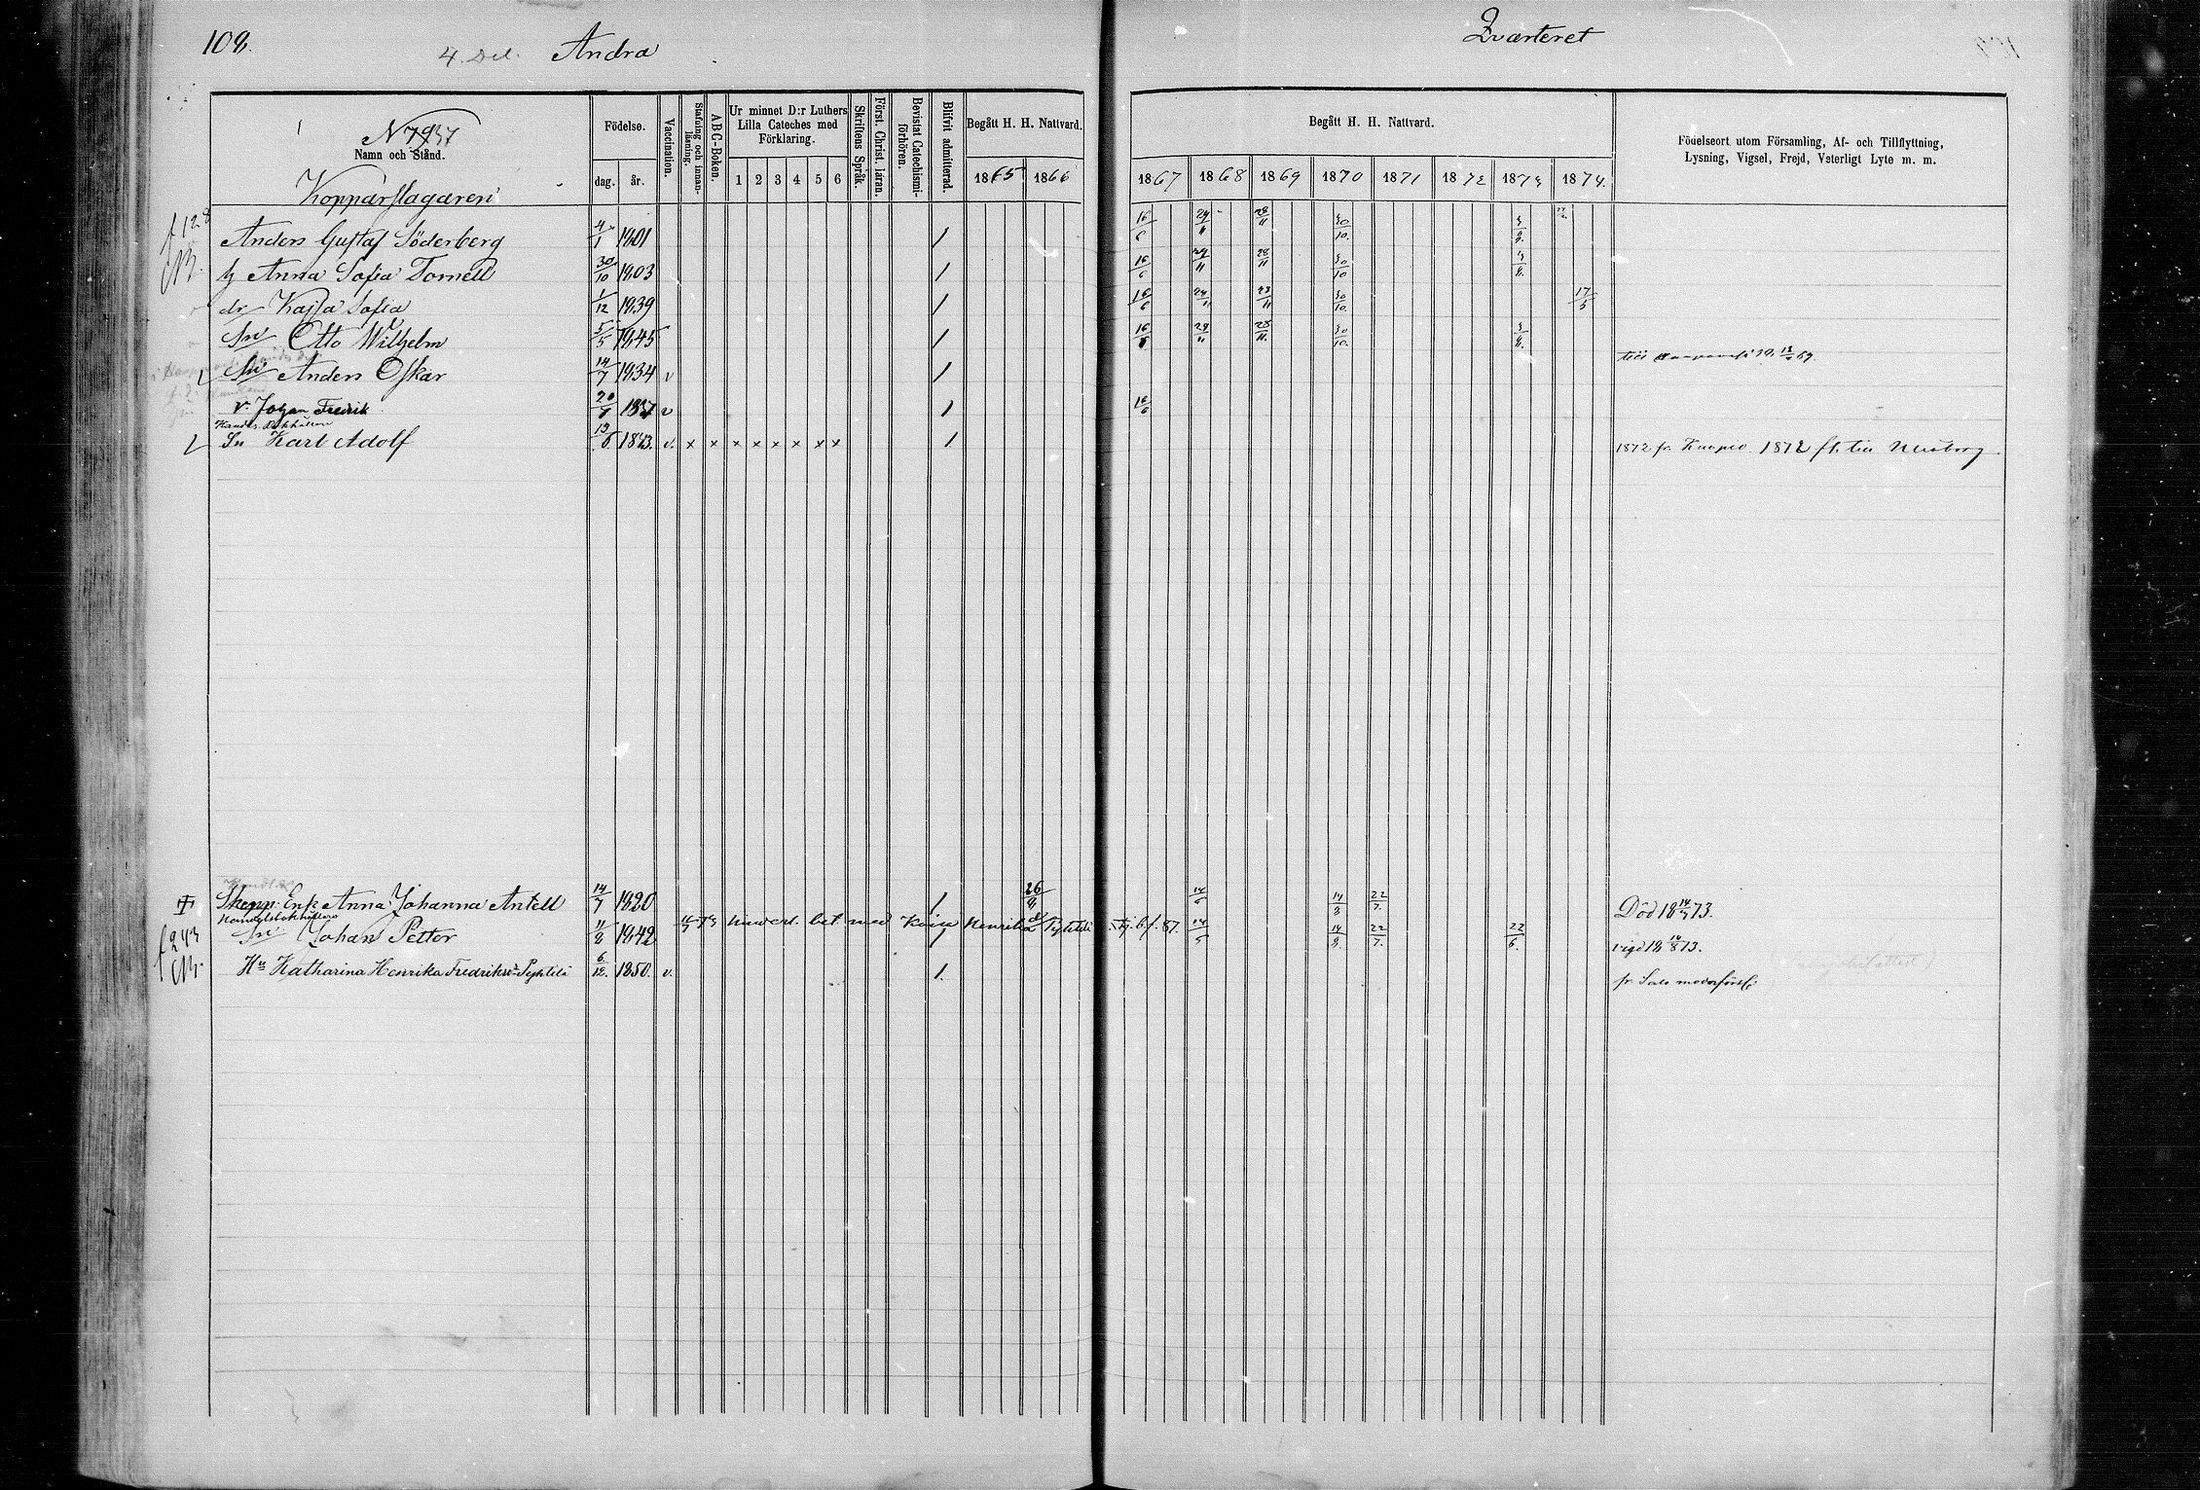 108.
4. Del.
Andra
Qvarteret
N 79 37
Namn och Stånd.
Födelse.
dag. år.
Vaccination.
Stafning och innanläsning.
ABC-Boken.
Ur minnet D:r Luthers Lilla Cateches med Förklaring.
1 2 3 4 5 6
Skriftens Språk.
Först. Christ. läran.
Bevistat Catechismi-förhören.
Blifvit admitterad.
Begått H. H. Nattvard.
1865 1866
Begått H. H. Nattvard.
1867 1868 1869 1870 1871 1872 1873 1874.
Födelseort utom Församling, Af- och Tillflyttning,
Lysning, Vigsel, Frejd, Veterligt Lyte m. m.
Kopparslagaren
f 128 Anders Gustaf Söderberg 4/1 1801 / 16/6 24/11 28/11 30/10. 3/8.
h Anna Sofia Tornell 30/10 1803 / 16/6 24/11 28/11 30/10 3/8.
dr Kajsa Sofia 1/12 1839 / 16/6 24/11 23/11 30/10. 17/5
Sn Otto Wilhelm 5/5 1845 / 16/6 24/11 28/11. 30/10. 3/8.
Sn Anders Oskar 14/7 1834 v / 69.
v. Johan Fredrik 20/9 1837 v / 16/6
Sn Karl Adolf 13/6 1843. v. x x x x x x x x 1. 1872 fr. Kuopio 1872 fl. till
Skepp. Enk Anna Johanna Antell 14/7 1820 / 26/8 14/6 14/8 22/7. Död 18 14/3 73.
Handelsbokhållare
f 243 Sn Johan Petter 11/8 1842 / 14/5 14/8. 22/7. 22/6. vigd 18 14/8 73.
Hu Katharina Henrika Fredriksdr Pyhtilä 6/12. 1850. v. 1. fr. Salo moderförsl.